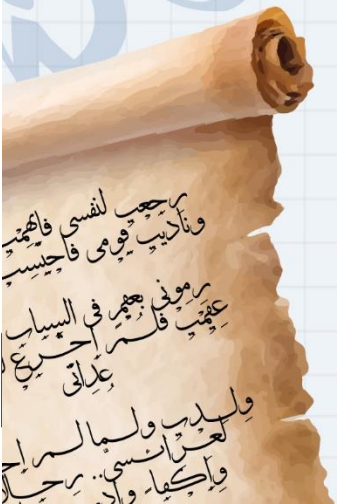 رجعت لنفسي فاتهمت
وناديت قومي فاحتسبت
رموني بعقم في الشباب
عقمت فلم أجزع ل
عداتي
ولدت ولما لم أج
لعرائسي.. رجال
وأكفاء وأد